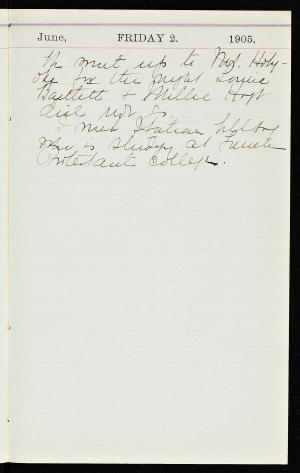 June, FRIDAY 2. 1905.
We went up to Mt. Holy-
oke for the night Louise
Bartlett & Millie Hoyt
did not go.
I met Italian
who is studying at French
Protestant College.